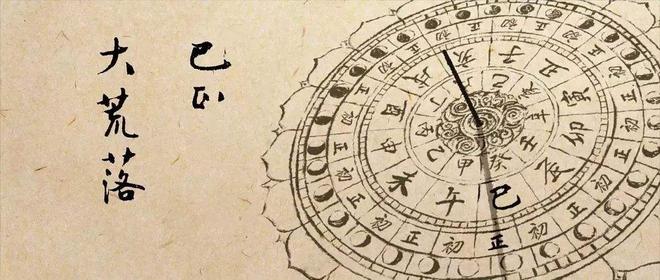 巳正
大荒落
子丑寅卯辰巳午未申酉戌亥
甲乙丙丁己壬癸
正初正初正初正初正初正初